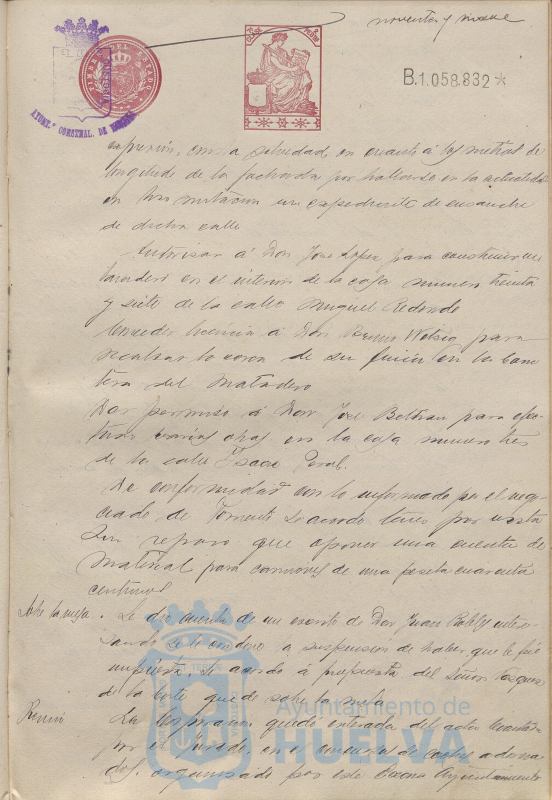 noventa y nueve
TIMBRE DEL ESTADO
B.1.058.832*
AYUNT.º CONSTNAL. DE HUELVA
expresión, con a en cuanto á los metros de
longitud de la fachada por hallarse en la actualidad
en tramitación un expediente de ensanche
de dicha calle
Autorizar á Don José López para construir un
lavadero en el interior de la casa número treinta
y siete de la calle Miguel Redondo
Conceder licencia á Don para
realizar la de su finca en la
del Matadero
Dar permiso á Don José Beltrán para efec
tuar varias obras en la casa número tres
de la calle Isaac Peral.
De conformidad con lo informado por el nego
ciado de Fomento se acordó
sin reparo que oponer una cuenta de
material para de una peseta cuarenta
céntimos
Sobre la mesa. Se dio cuenta de un escrito de Don Juan intere
sando se le condone la suspensión de haber, que le fué
impuesta, se acordó á propuesta del Señor Vázquez
de la Corte quede sobre la mesa
La Corporación quedó enterada del acta levantada
por el Jurado, en el concurso de
dos, organizado por este Excmo Ayuntamiento
Ayuntamiento de
HUELVA